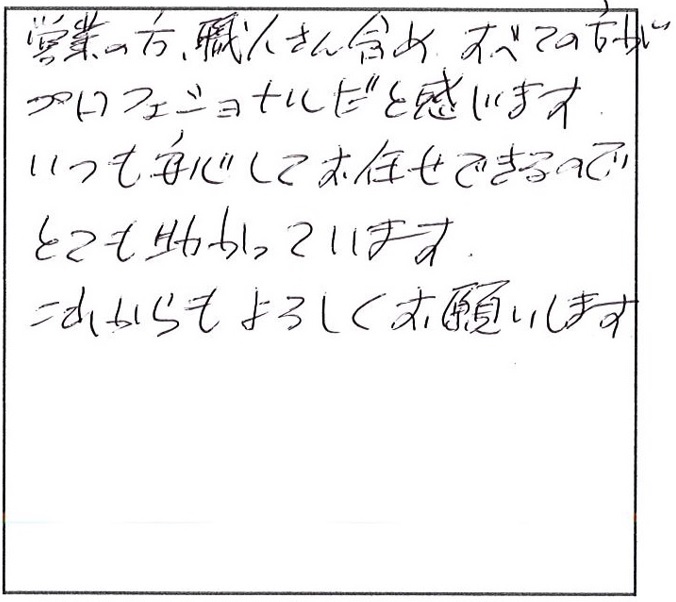 営業の方、職人さん含め すべての方が
プロフェショナルだと感じます.
いつも安心してお任せできるので
とても助かっています.
これからもよろしくお願いします